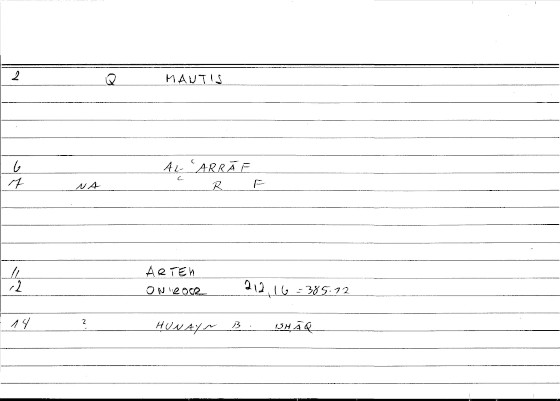 2 Q MAUTIS
6 AL-ʿARRĀF
7 NA ʿ R F
11 ARTEM
12 ONIROCR 212,16 = 385.12
14 ? HUNAYN B. ISHĀQ